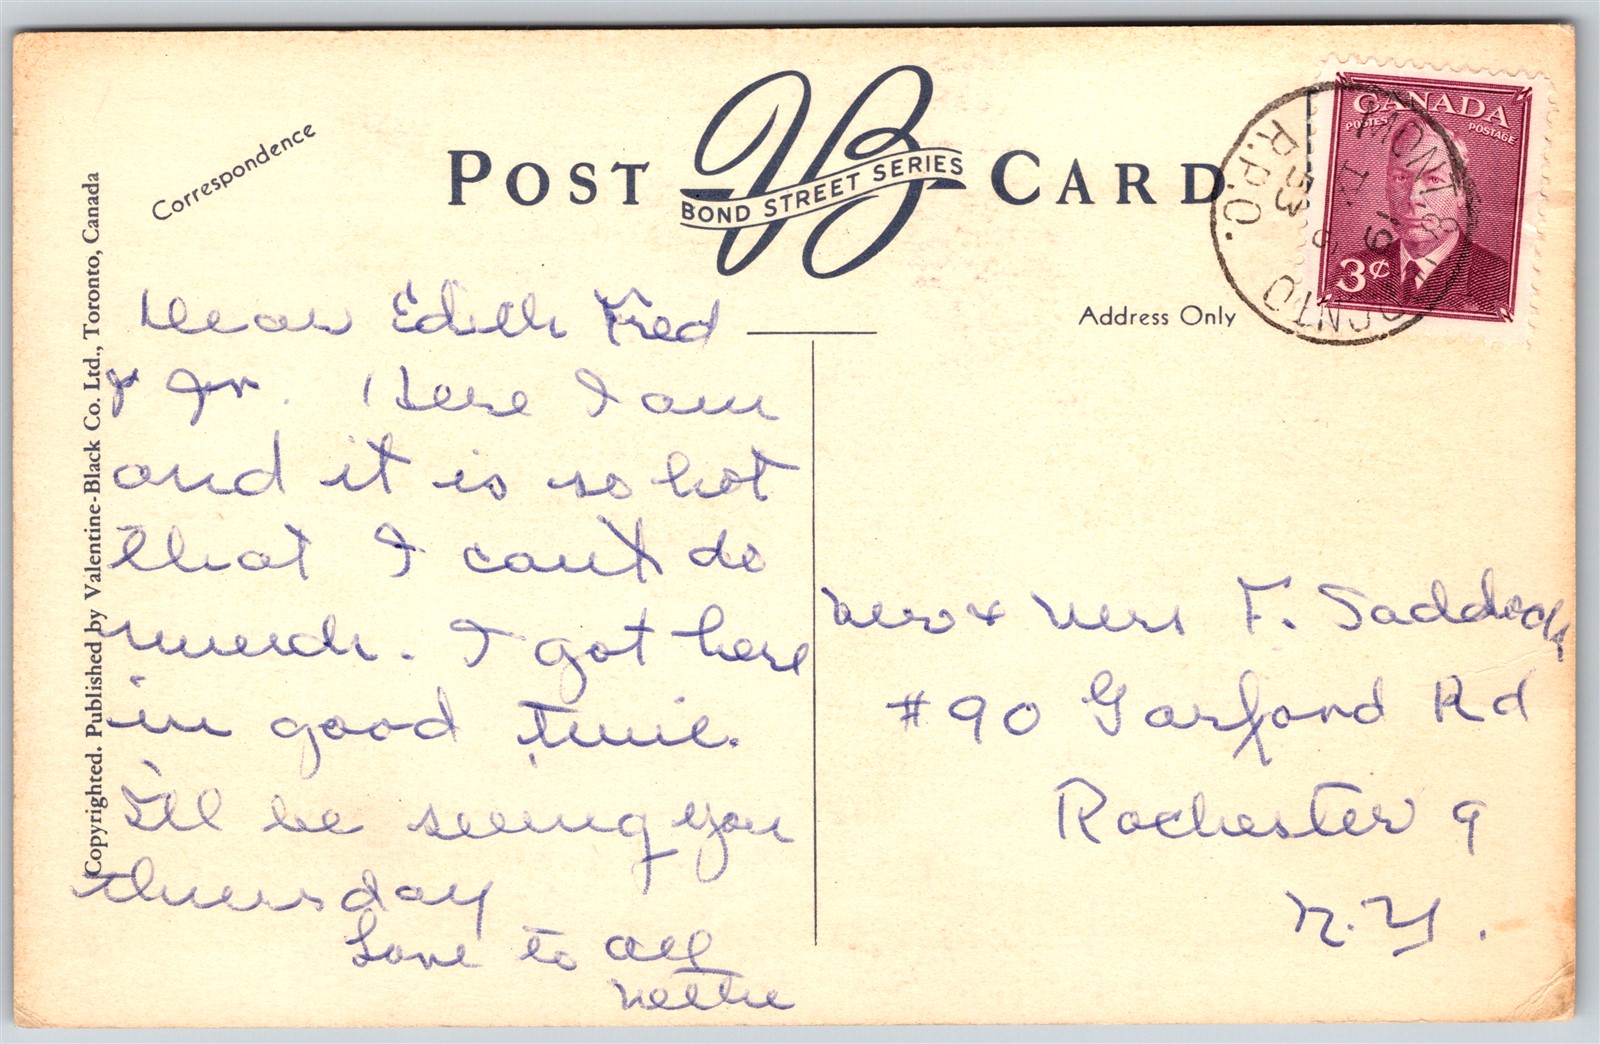 Correspondence
POST CARD
VB
BOND STREET SERIES
CANADA
POSTES POSTAGE
3¢
R.P.O.
19
53
Address Only
Copyrighted. Published by Valentine-Black Co. Ltd., Toronto, Canada
Dear Edith Fred
& Jr. Here I am
and it is so hot
that I can't do
much. I got here
in good time.
I'll be seeing you
thursday
Love to all
Nettie
Mr & Mrs F. Saddock
#90 Garford Rd
Rochester 9
N.Y.